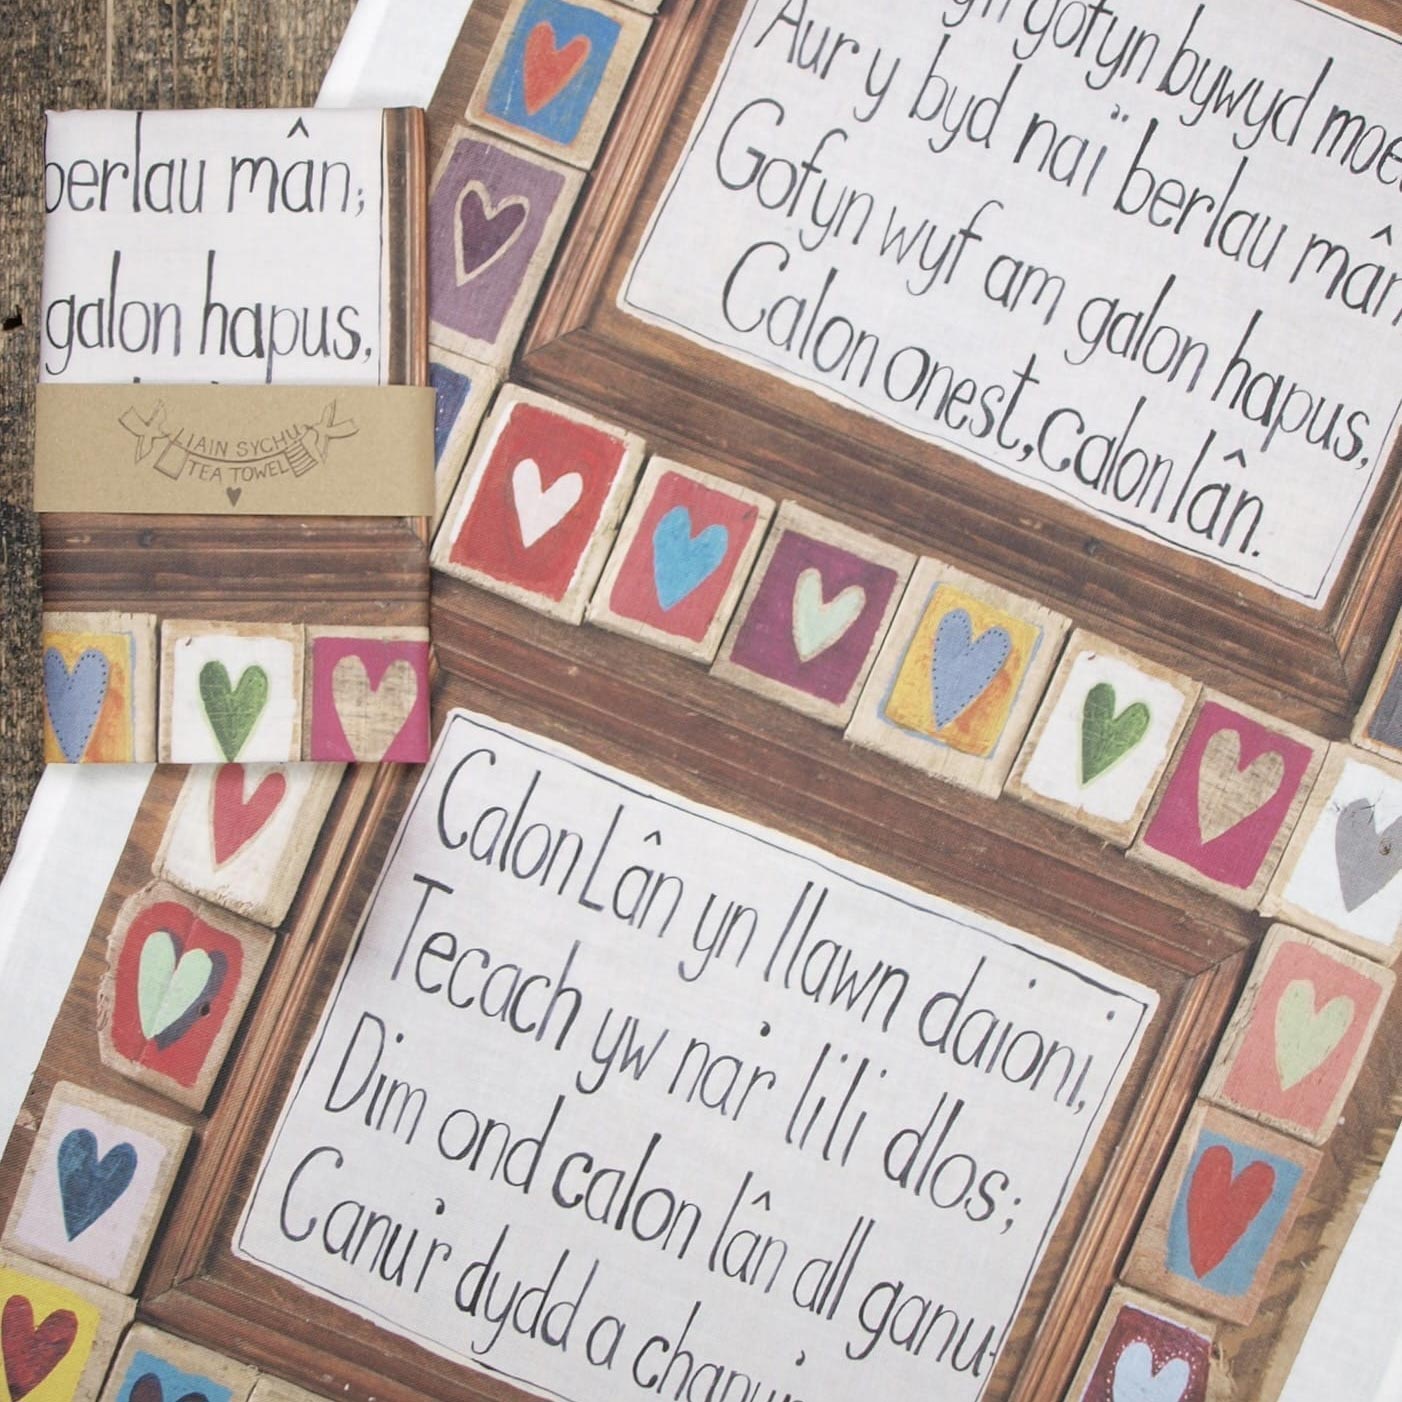 berlau mân;
galon hapus,
LIAIN SYCHU
TEA TOWEL
gofyn bywyd
Aur y byd naï berlau mân
Gofyn wyf am galon hapus,
Calon onest, calon lân.
Calon Lân yn llawn daioni,
Tecach yw na'r lili dlos;
Dim ond calon lân all ganu-
Canu'r dydd a chanu'r